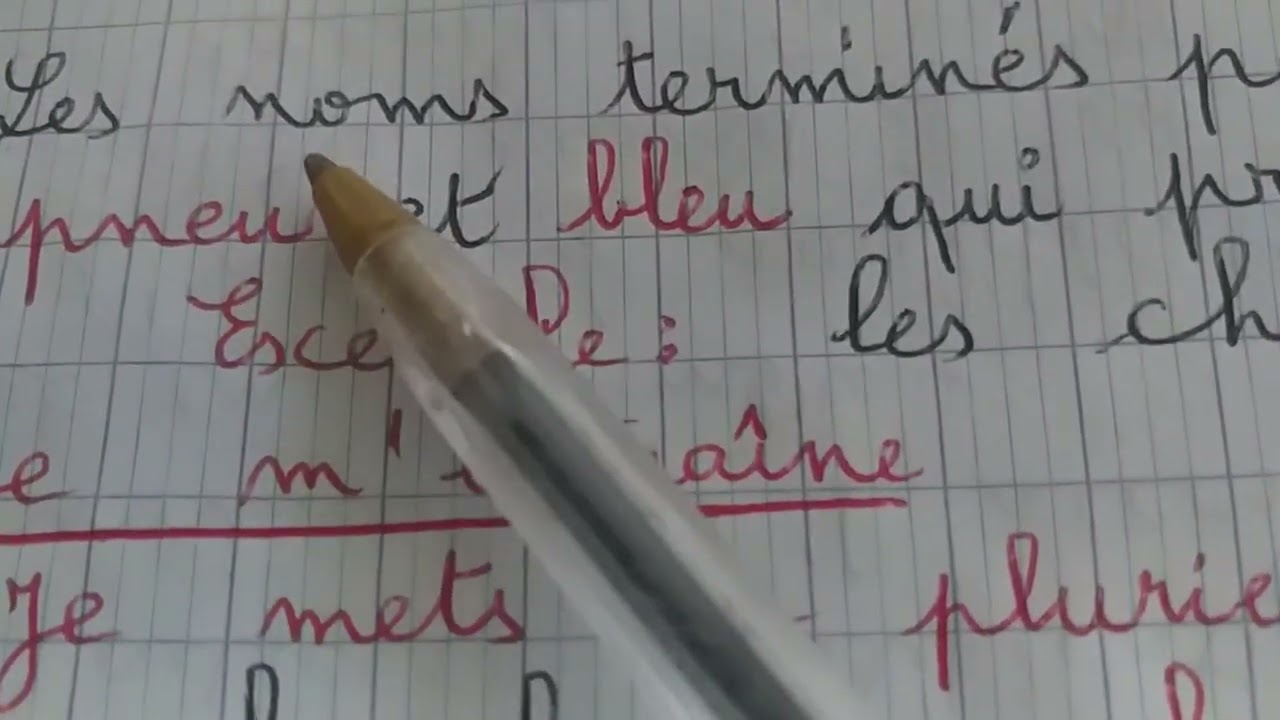 Les noms terminés p
pneu et bleu qui pr
Exce ple: les ch
e m' aîne
Je mets plurie